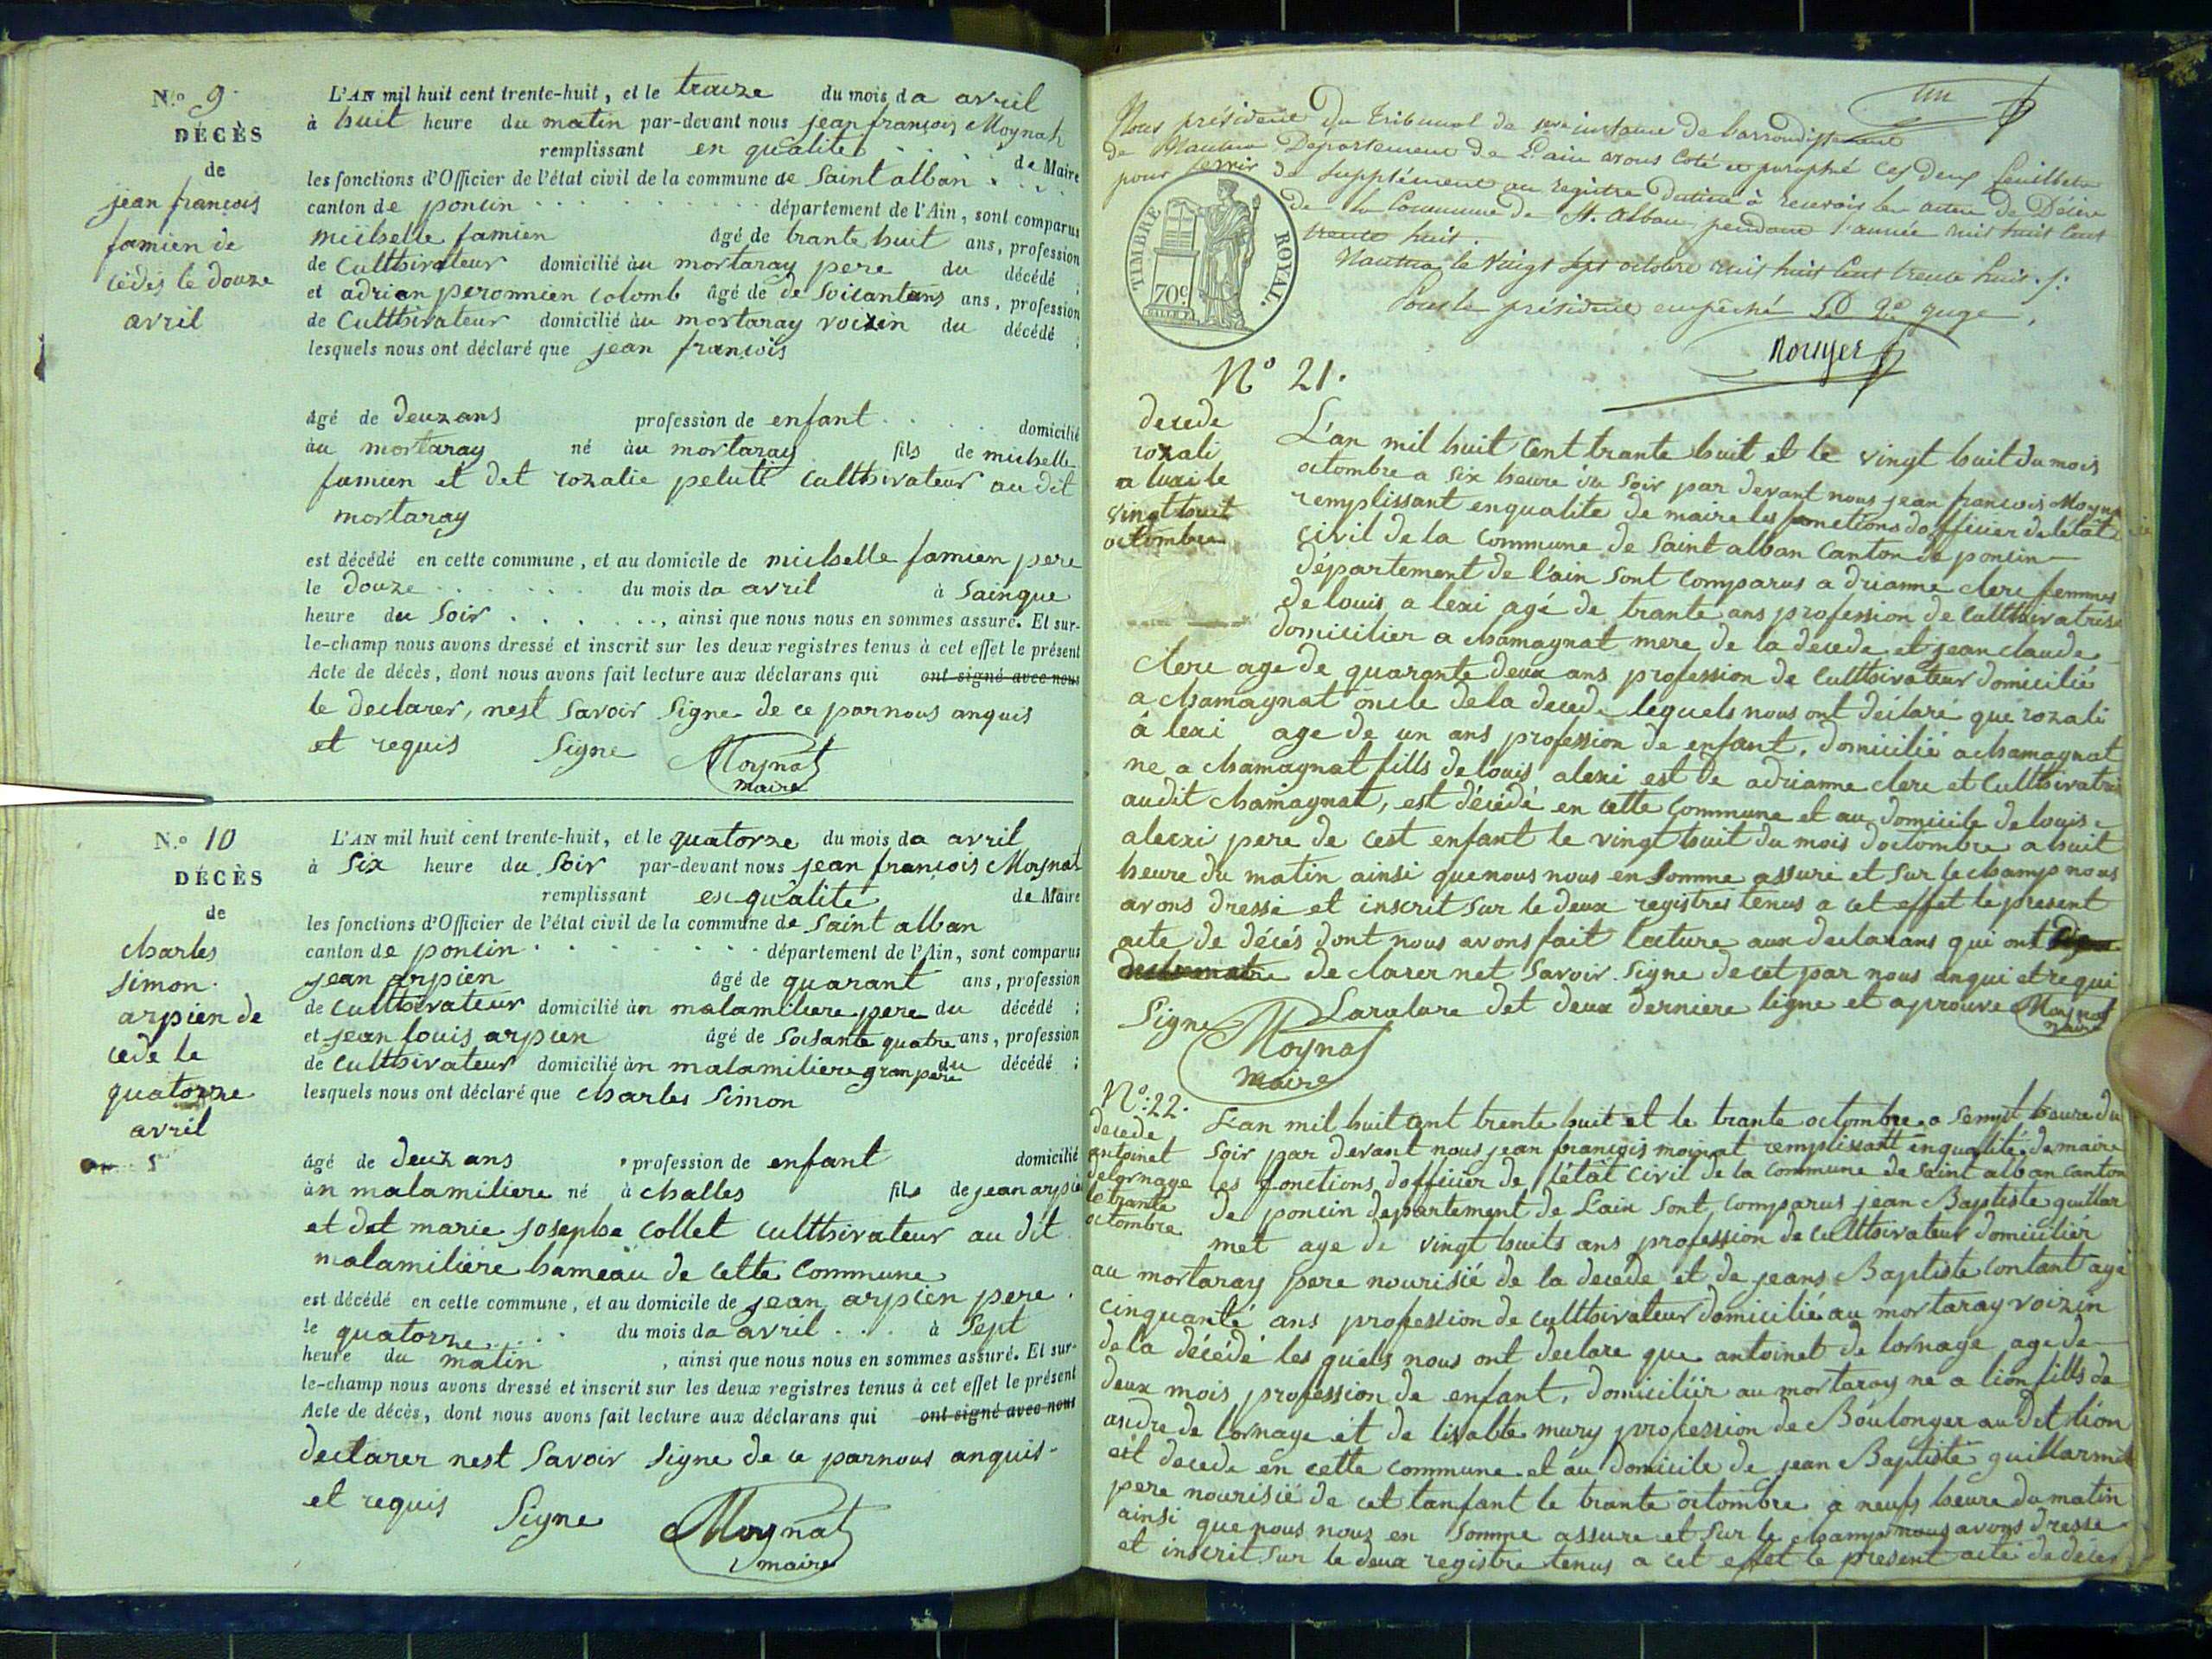 N.º 9
DÉCÈS
de
jean françois
famien de
cedés le douze
avril
L'AN mil huit cent trente-huit, et le traize du mois da avril
à huit heure du matin par-devant nous jean françois Moynat
remplissant en qualite de Maire
les fonctions d'Officier de l'état civil de la commune de Saint alban
canton de poncin département de l'Ain, sont comparus
michelle famien âgé de trante huit ans, profession
de Cultthivateur domicilié àu mortaray pere du décédé ;
et adrian peronnien colomb âgé de de Soicantans ans, profession
de Cultthivateur domicilié àu mortaray voizin du décédé ;
lesquels nous ont déclaré que jean françois
âgé de deuz ans profession de enfant domicilié
àu mortaray né àu mortaray fils de michelle
famien et det rozalie peluti cultthivateur au dit
mortaray
est décédé en cette commune, et au domicile de michelle famien pere
le douze du mois da avril à Sainque
heure du Soir , ainsi que nous nous en sommes assuré. Et sur-
le-champ nous avons dressé et inscrit sur les deux registres tenus à cet effet le présent
Acte de décès, dont nous avons fait lecture aux déclarans qui ont signé avec nous
le declarer, nest Savoir Signe de ce parnous anquis
et requis Signe Moynat
maire
N.º 10
DÉCÈS
de
charles
simon
arpien de
cede le
quatorze
avril
L'AN mil huit cent trente-huit, et le quatorze du mois da avril
à Six heure du Soir par-devant nous jean françois Moynat
remplissant en qualite de Maire
les fonctions d'Officier de l'état civil de la commune de Saint alban
canton de poncin département de l'Ain, sont comparus
jean arpien âgé de quarant ans, profession
de cultthivateur domicilié àn malamiliere pere du décédé ;
et jean louis arpien âgé de Soisante quatre ans, profession
de cultthivateur domicilié àn malamiliere gran pere du décédé ;
lesquels nous ont déclaré que charles Simon
âgé de deuz ans profession de enfant domicilié
àn malamiliere né à challes fils de jean arpien
et det marie josephe collet cultthivateur au dit
malamiliere hameau de cette Commune
est décédé en cette commune, et au domicile de jean arpien pere
le quatorze du mois da avril à Sept
heure du matin , ainsi que nous nous en sommes assuré. Et sur-
le-champ nous avons dressé et inscrit sur les deux registres tenus à cet effet le présent
Acte de décès, dont nous avons fait lecture aux déclarans qui ont signé avec nous
declarer nest Savoir Signe de ce parnous anquis
et requis Signe Moynat
maire
un
Nous président du Tribunal de 1ere instance de l'arrondissement
de Nantua Departement de l'ain avons coté et paraphé ces deux feuillets
pour servir de supplément au registre destiné à recevoir les actes de Décès
de la Commune de St. Alban pendant l'année mil huit cent
trente huit.
Nantua le vingt sept octobre mil huit cent trente huit.
Pour le président empêché Le 2e juge
Rouyer
TIMBRE ROYAL.
70c
Nº 21.
decede
rozali
a lexi le
vingt huit
octombre
L'an mil huit cent trante huit et le vingt huit du mois
octombre a six heure du Soir par devant nous jean francois Moynat
remplissant enqualite de maire les fonctions dofficier deletàt
civil de la Commune de Saint alban Canton de poncin
département de l'ain Sont Comparus adrianne clerc femmes
de louis a lexi agé de trante ans profession de Cultthivatrise
domicilier a chamagnat mere de la decede et jean claude
clerc age de quarante deux ans profession de Cultthivateur domicilié
a chamagnat oncle dela decede lequels nous ont déclaré que rozali
à lexi age de un ans profession de enfant, domicilié a chamagnat
ne a chamagnat fills de louis alexi est de adrianne clerc et Cultthivatris
audit chamagnat, est décédé en cette Commune et au domicile de louis
alexi pere de cest enfant le vingt huit du mois doctombre a huit
heure du matin ainsi que nous nous en Somme assuré et Sur le champ nous
avons dressé et inscrit Sur le deux registres tenus a cet effet le present
acte de décés dont nous avons fait lecture aux declarans qui ont
declarer net Savoir Signe de cet par nous anqui et requi
Signe Laralure det deux derniere ligne et aprouve Moynat
maire
Moynat
maire
Nº. 22.
decede
antoinet
delornage
le trante
octombre
L'an mil huit cent trente huit et le trante octombre a Sempt heure du
Soir par devant nous jean françois moinat remplissant enqualite de maire
les fonctions dofficier de létàt civil de la commune de Saint alban canton
de poncin departement de Lain Sont, comparus jean Baptiste guillar
met age de vingt huits ans profession de cultthivateur domicilier
au mortaray pere nourisié de la decede et de jeans Baptiste Contant agé
cinquanté ans profession de cultthivateur domicilié au mortaray voizin
dela décédé les quels nous ont declare que antoinet de lornage age de
deux mois profession de enfant, domiciliér au mortaray ne a lion fills de
andre de lornage et de lisabte mury profession de Boulonger au det lion
est decede en cette commune et au domicile de jean Baptiste guillarmet
pere nourisié de cet tanfant le trante octombre à neufs heure du matin
ainsi que nous nous en Somme assure et Sur le champ nous avons dresse
et inscrit Sur le deux registre tenus a cet effet le present acte de deces